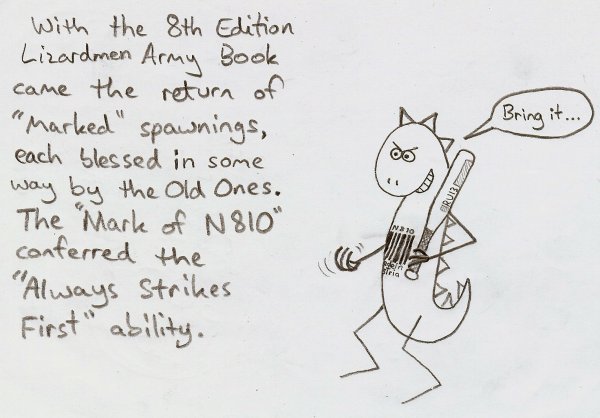 With the 8th Edition
Lizardmen Army Book
came the return of
"Marked" spawnings,
each blessed in some
way by the Old Ones.
The "Mark of N810"
conferred the
"Always Strikes
First" ability.
Bring it...
N810